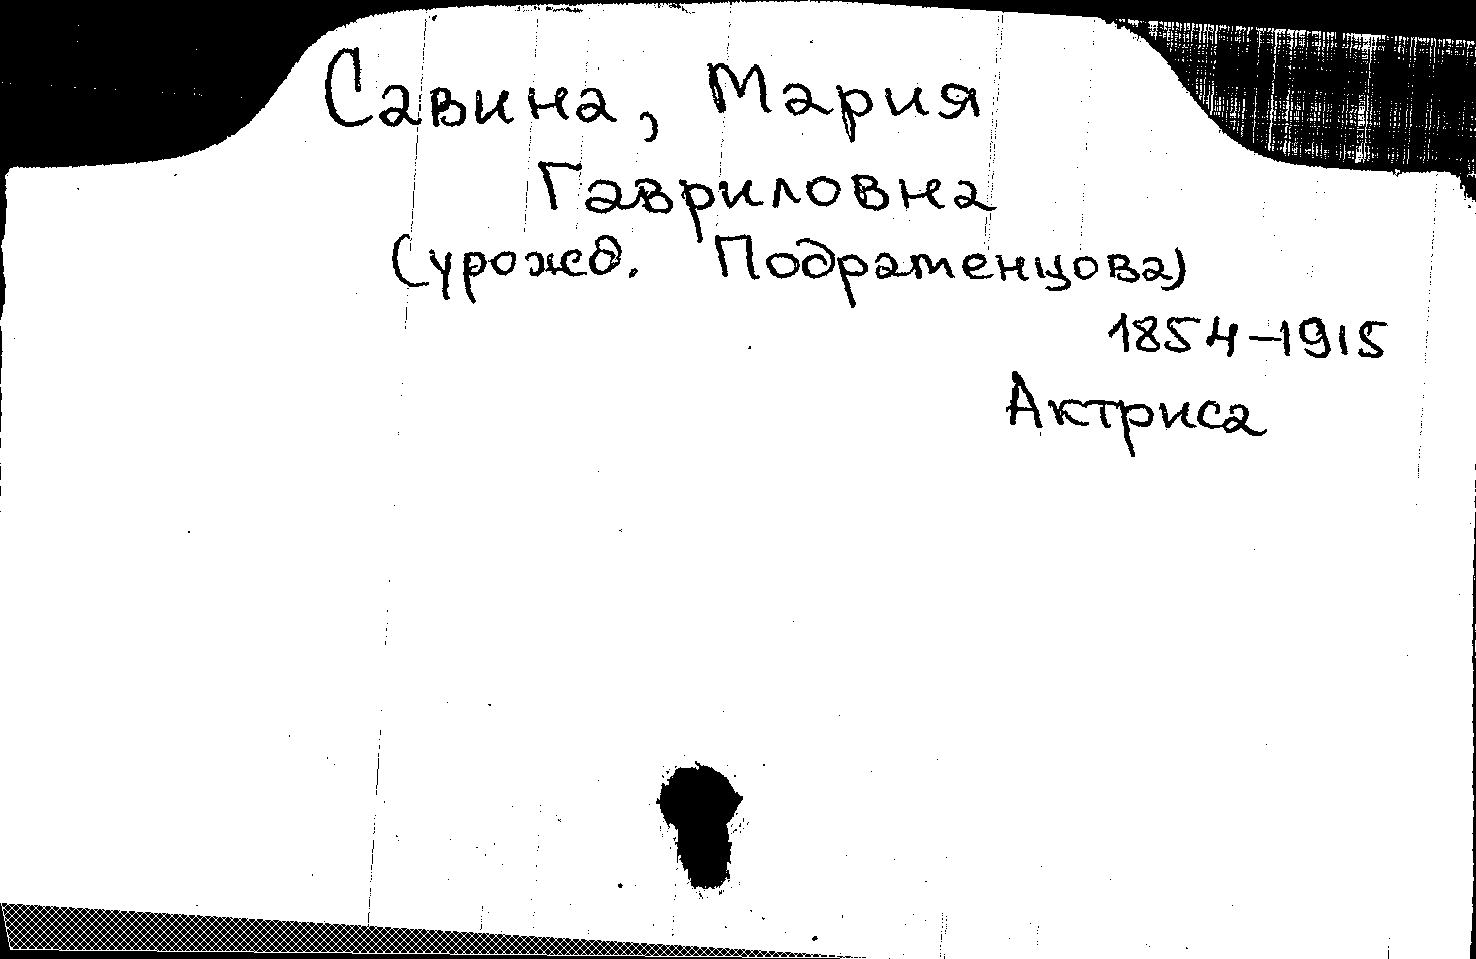 Савина, Мария
Гавриловна
(урожд. Подраменцова)
1854-1915
Актриса